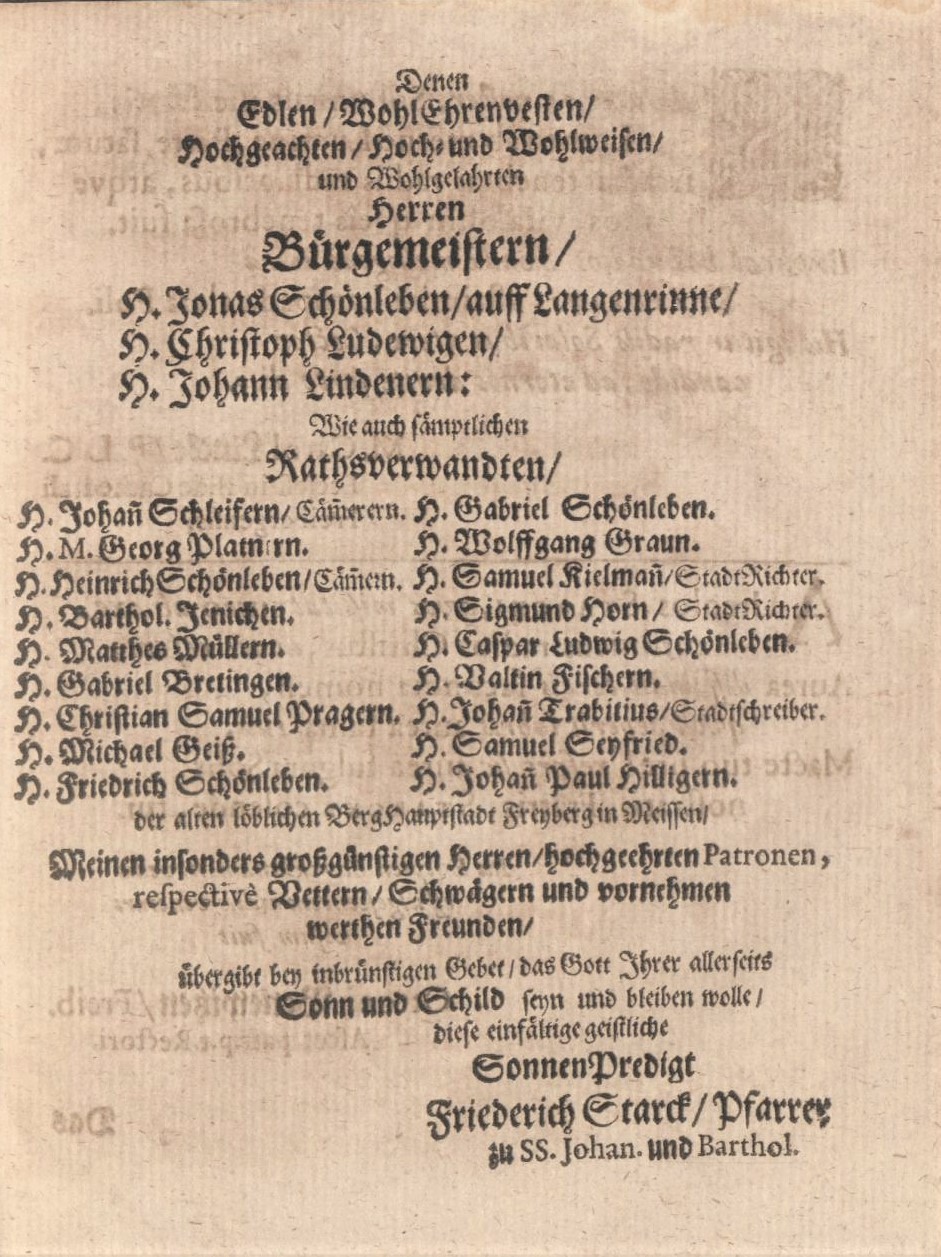 Denen
Edlen / WohlEhrenvesten /
Hochgeachten / Hoch- und Wohlweisen /
und Wohlgelahrten
Herren
Bürgemeistern /
H. Jonas Schönleben / auff Langenrinne /
H. Christoph Ludewigen /
H. Johann Lindenern:
Wie auch sämptlichen
Rathsverwandten /
H. Johan̄ Schleifern / Cäm̄erern. H. Gabriel Schönleben.
H. M. Georg Platnern. H. Wolffgang Graun.
H. Heinrich Schönleben / Cäm̄ern. H. Samuel Kielman̄ / StadtRichter.
H. Barthol. Jenichen. H. Sigmund Horn / StadtRichter.
H. Matthes Müllern. H. Caspar Ludwig Schönleben.
H. Gabriel Bretingen. H. Valtin Fischern.
H. Christian Samuel Pragern. H. Johan̄ Trabitius / Stadtschreiber.
H. Michael Geiß. H. Samuel Seyfried.
H. Friedrich Schönleben. H. Johan̄ Paul Hilligern.
der alten löblichen BergHauptstadt Freyberg in Meissen /
Meinen insonders großgünstigen Herren / hochgeehrten Patronen,
respectivè Vettern / Schwägern und vornehmen
werthen Freunden /
übergibt bey inbrünstigen Gebet / das Gott Ihrer allerseits
Sonn und Schild seyn und bleiben wolle /
diese einfältige geistliche
SonnenPredigt
Friederich Starck / Pfarrer
zu SS. Johan. und Barthol.